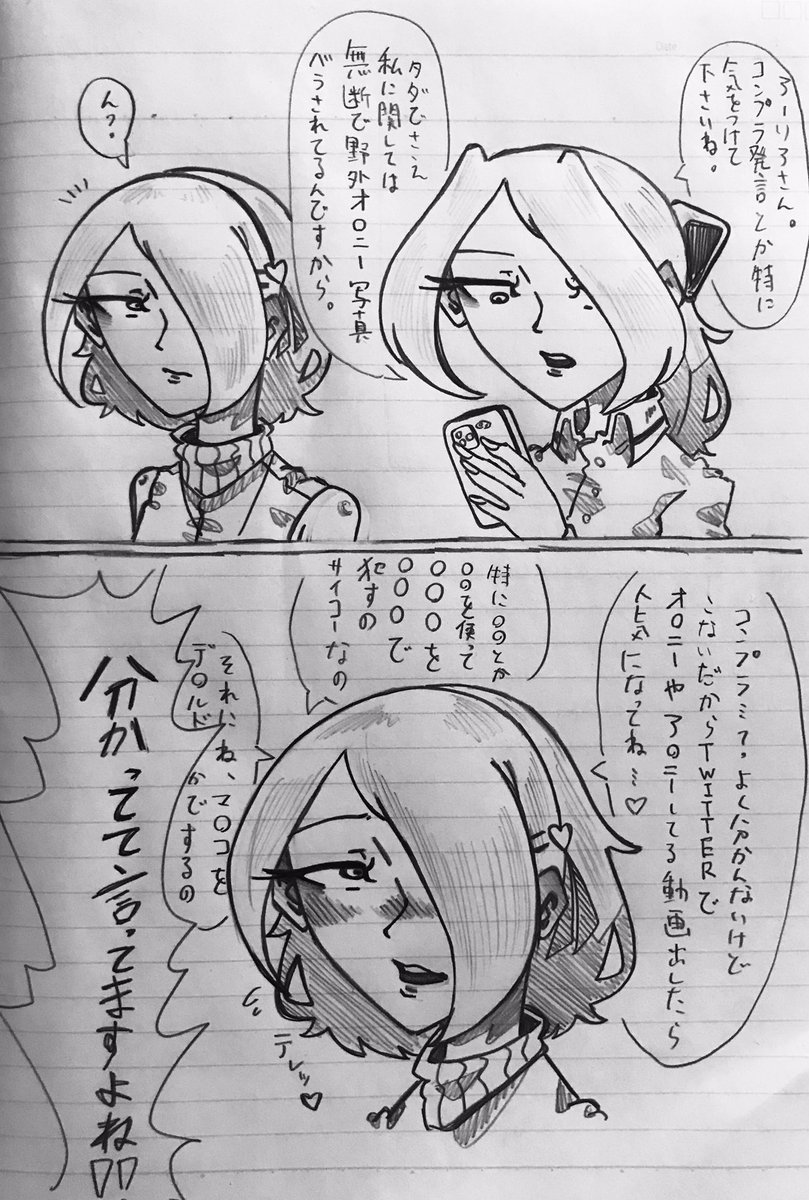 ろーりろさん。
コンプラ発言とか特に
気をつけて
下さいね。
タダでさえ
私に関しては
無断で野外オ〇ニー写真
バラされてるんですから。
ん?
コンプラぁ?。よく分かんないけど
こないだからTWITTERで
オ〇ニーやア〇ニーしてる動画出したら
人気になってね…♡
特に〇〇とか
〇〇を使って
〇〇〇を
〇〇〇で
犯すの
サイコーなの
それにね、マ〇コを
デ〇ルド
かでするの
テレッ♡
分かってて言ってきますよね!!